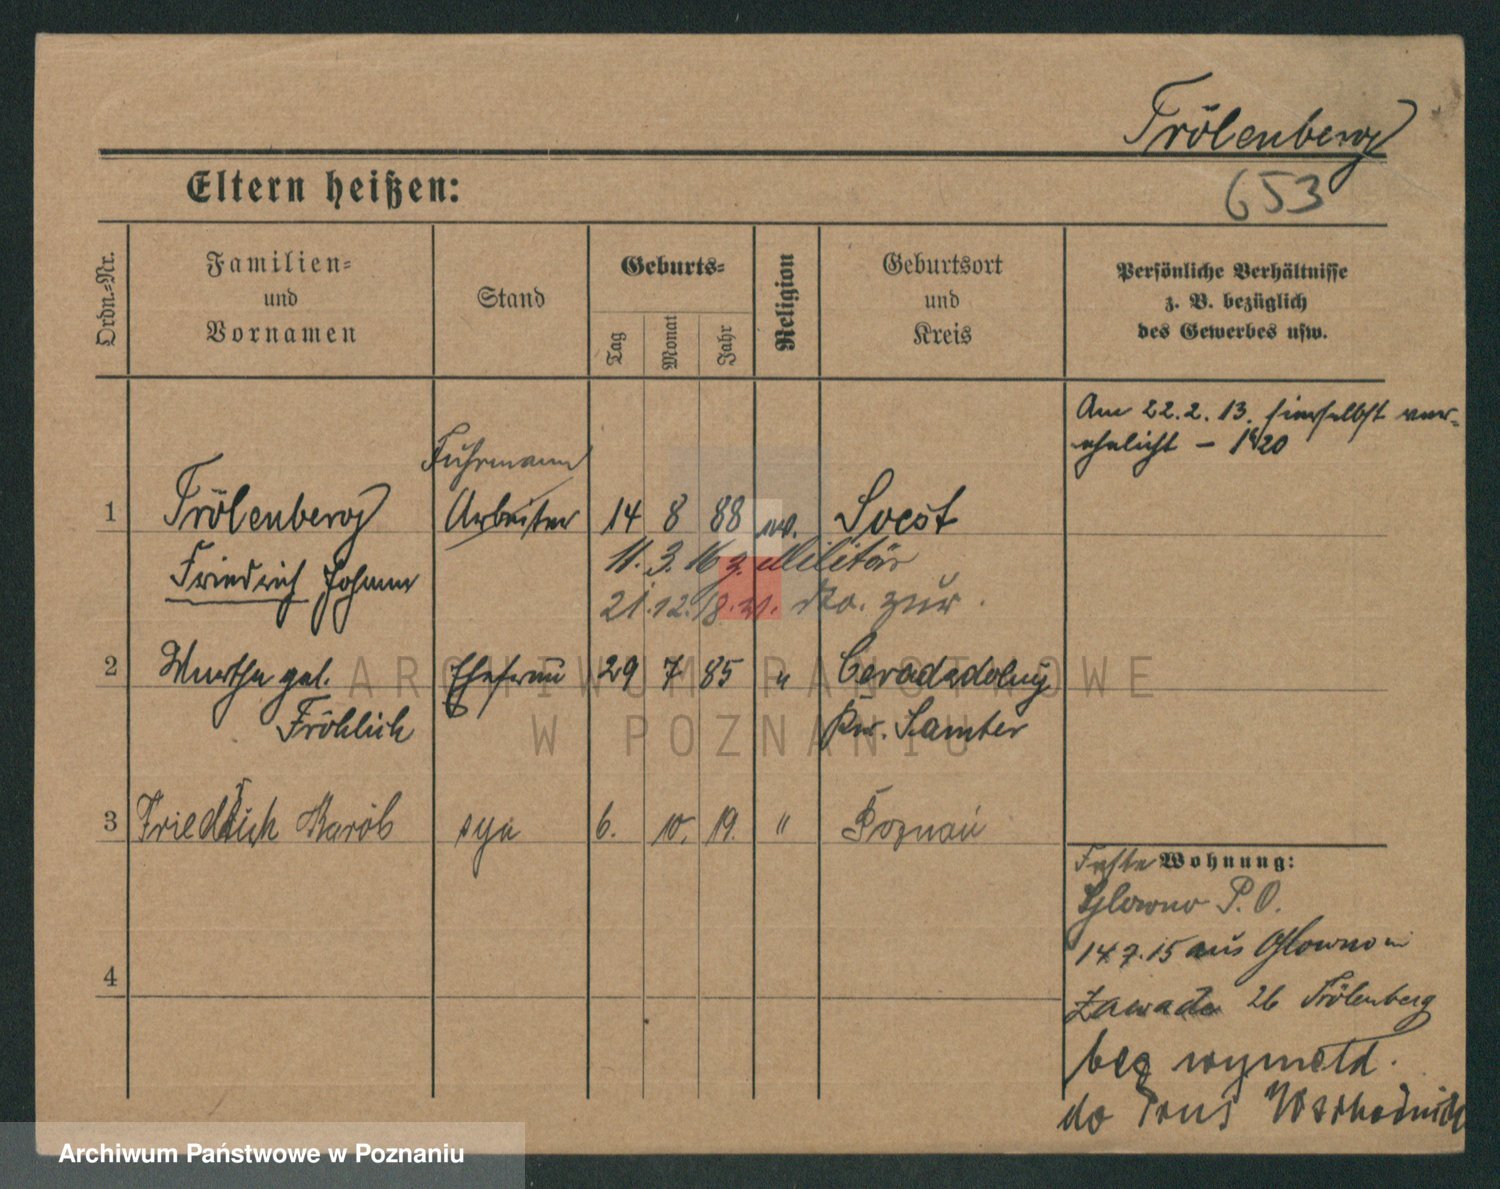 Frölenberg
653
Eltern heißen:
Ordn.-Nr.
Familien-
und
Vornamen
Stand
Geburts-
Tag
Monat
Jahr
Religion
Geburtsort
und
Kreis
Persönliche Verhältnisse
z. B. bezüglich
des Gewerbes usw.
Am 22.2.13. hierselbst ver-
ehelicht – 1920
Fuhrmann
1 Frölenberg Arbeiter 14 8 88 ev. Soest
Friedrich Johann
11.3.16 z. Militär
21.12.18. v. dto. zur.
2 Martha geb. Ehefrau 29 7 85 " Ceradzdolny
Fröhlich Kr. Samter
3 Friedrich Karól syn 6. 10. 19. " Poznań
4
Feste Wohnung:
Glowno P.O.
14 7.15 aus Glowno n
Zawade 26 Frölenberg
bez wymeld.
do Prus Wschodnich
ARCHIWUM PAŃSTWOWE
W POZNANIU
Archiwum Państwowe w Poznaniu